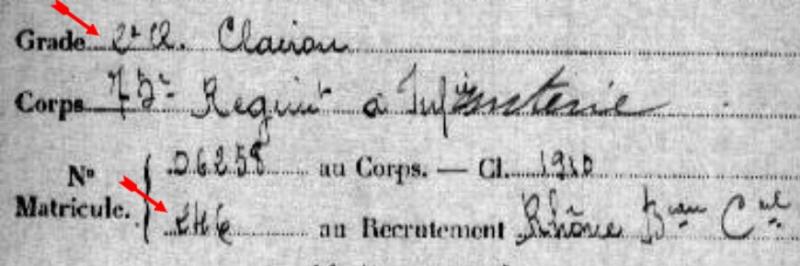 Grade 2e Cl. Clairon
Corps 75e Regimt d'Infanterie
No Matricule. { 06258 au Corps. — Cl. 1910
246 au Recrutement Rhône Bau Cal